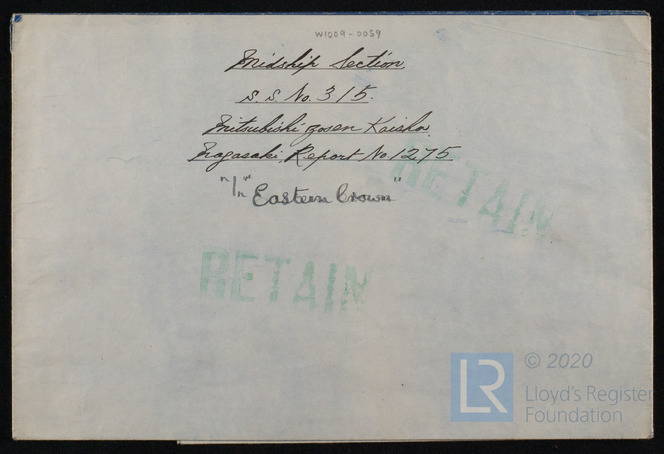 W1009-0059
Midship Section
S.S. No. 315.
Mitsubishi Zosen Kaisha
Nagasaki, Report No. 1275
"Eastern Crown"
RETAIN
RETAIN
LR
© 2020
Lloyd's Register
Foundation